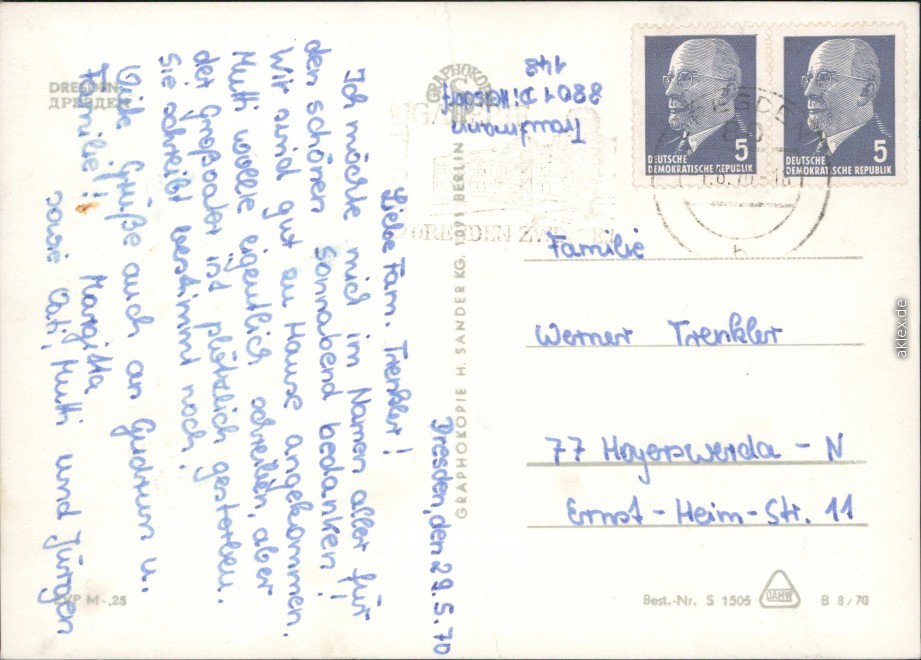 DRESDEN
ДРЕЗДЕН
Dresden, den 29.5.70
Liebe Fam. Trenkler!
Ich möchte mich im Namen aller für
den schönen Sonnabend bedanken!
Wir sind gut zu Hause angekommen.
Mutti wollte eigentlich schreiben, aber
der Großvater ist plötzlich gestorben.
Sie schreibt bestimmt noch.
Viele Grüße auch an Gudrun u.
Familie!
Margitta
sowie Vati, Mutti und Jürgen
EVP M -,25
GRAPHOKOPIE H. SANDER KG. 1071 BERLIN
GRAPHOKOPIE
Trautmann
8801
143
DRESDEN ZWINGER
DEUTSCHE
DEMOKRATISCHE REPUBLIK
5
DEUTSCHE
DEMOKRATISCHE REPUBLIK
5
Familie
Werner Trenkler
77 Hoyerswerda - N
Ernst-Heim-Str. 11
Best.-Nr. S 1505
B 8/70
aklex.de